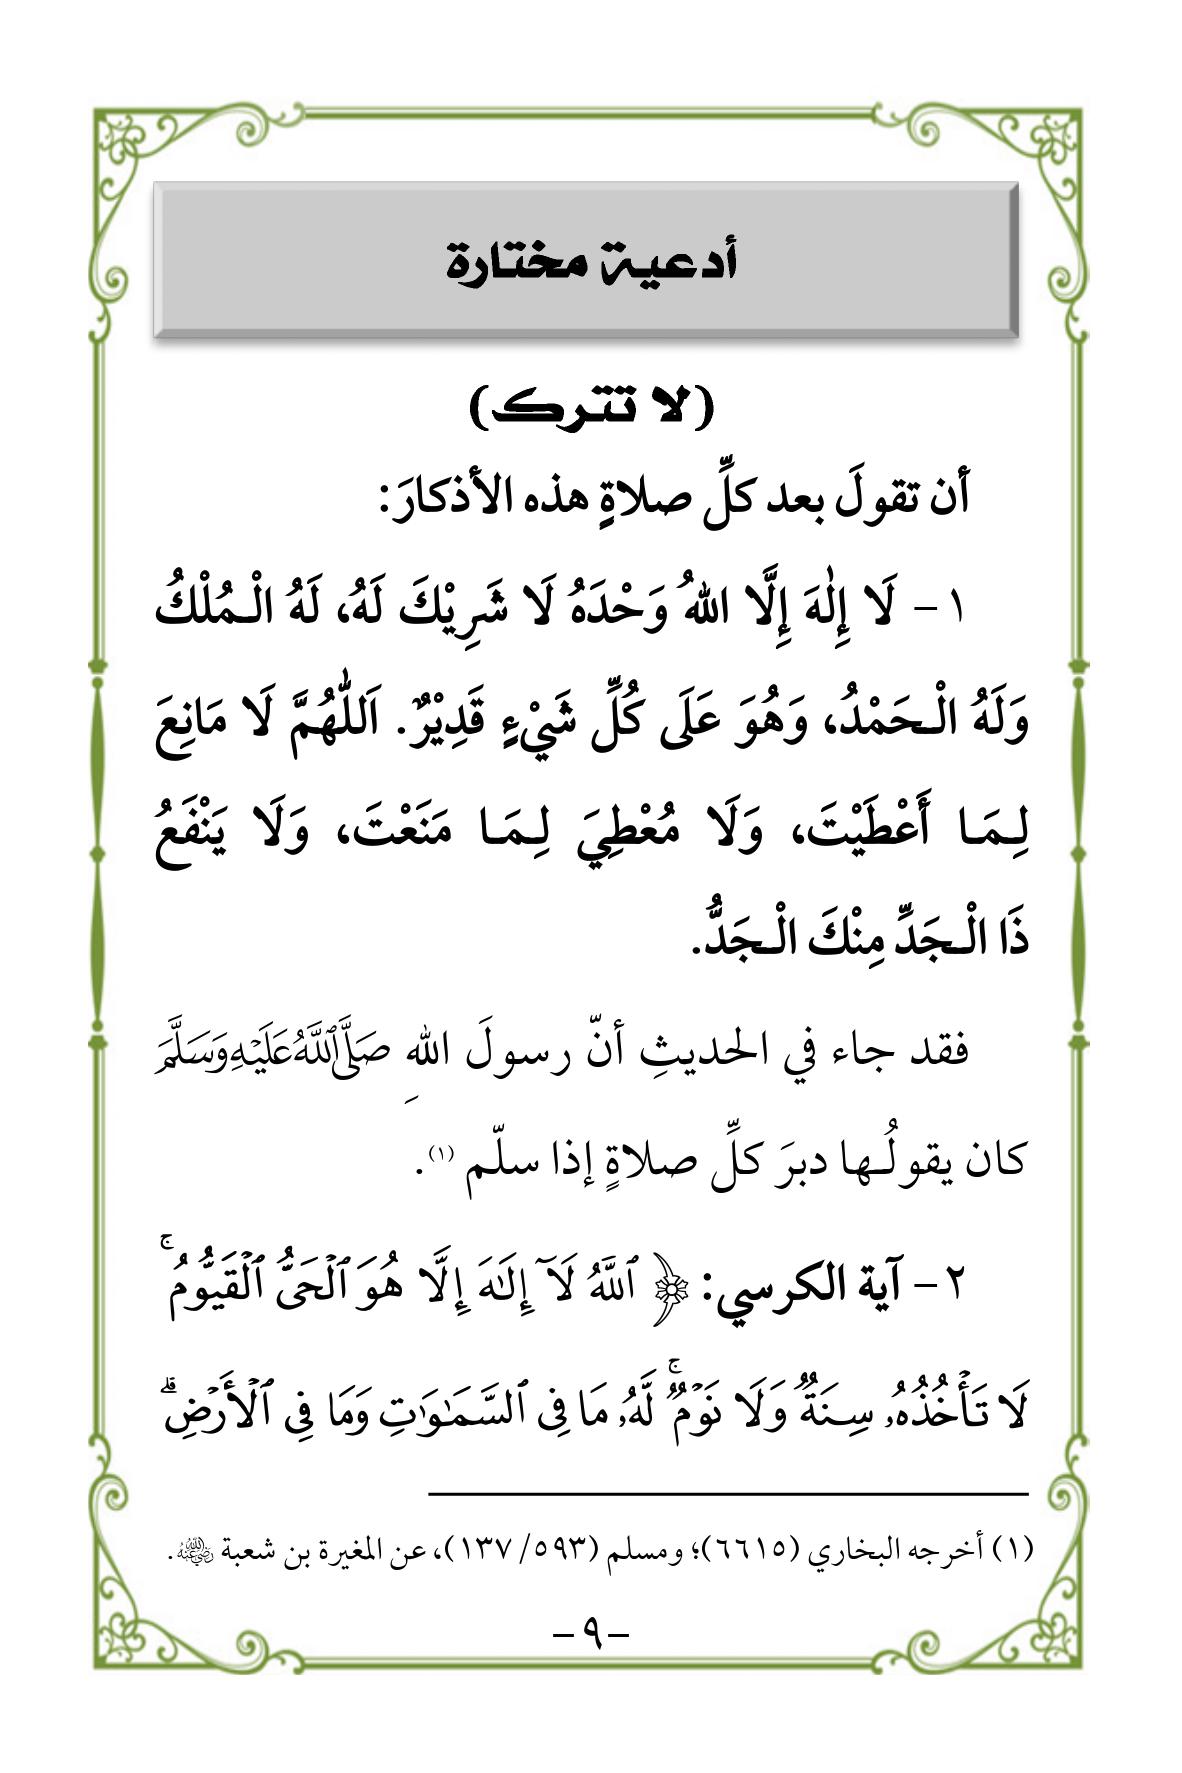 أدعية مختارة
(لا تترك)
أن تقولَ بعد كلِّ صلاةٍ هذه الأذكارَ:
١- لَا إِلٰهَ إِلَّا اللهُ وَحْدَهُ لَا شَرِيْكَ لَهُ، لَهُ الْـمُلْكُ
وَلَهُ الْـحَمْدُ، وَهُوَ عَلَى كُلِّ شَيْءٍ قَدِيْرٌ. اَللّٰهُمَّ لَا مَانِعَ
لِـمَـا أَعْطَيْتَ، وَلَا مُعْطِيَ لِـمَـا مَنَعْتَ، وَلَا يَنْفَعُ
ذَا الْـجَدِّ مِنْكَ الْـجَدُّ.
فقد جاء في الحديثِ أنّ رسولَ اللهِ صَلَّى اللَّهُ عَلَيْهِ وَسَلَّمَ
كان يقولُـها دبرَ كلِّ صلاةٍ إذا سلّم (١).
٢- آية الكرسي: ﴿ ٱللَّهُ لَآ إِلَـٰهَ إِلَّا هُوَ ٱلْحَىُّ ٱلْقَيُّومُ ۚ
لَا تَأْخُذُهُۥ سِنَةٌ وَلَا نَوْمٌ ۚ لَّهُۥ مَا فِى ٱلسَّمَـٰوَٰتِ وَمَا فِى ٱلْأَرْضِ ۗ
(١) أخرجه البخاري (٦٦١٥)؛ ومسلم (٥٩٣/ ١٣٧)، عن المغيرة بن شعبة رَضِيَ اللَّهُ عَنْهُ.
-٩-